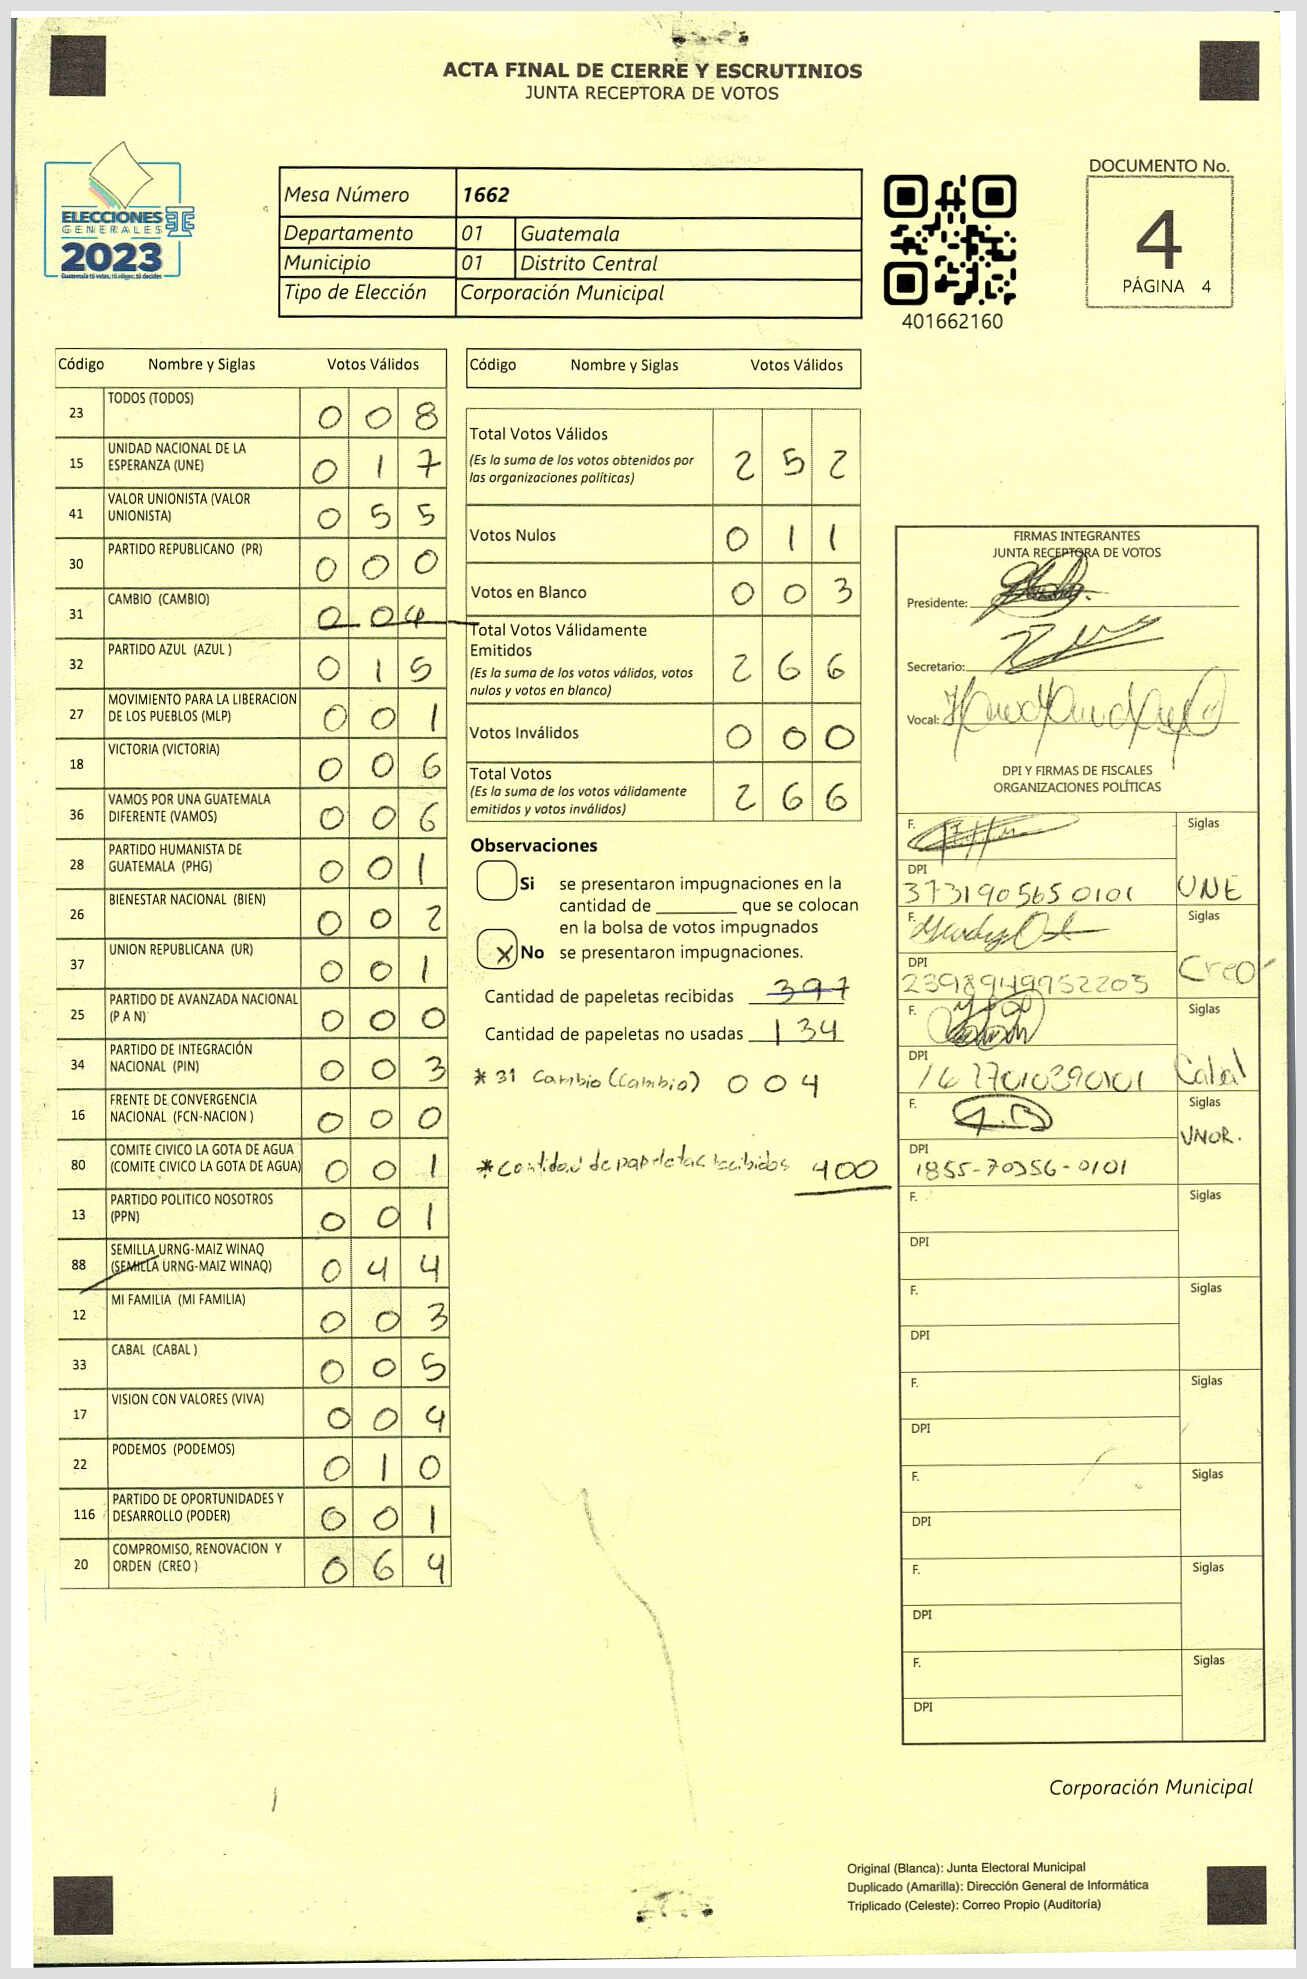 ACTA FINAL DE CIERRE Y ESCRUTINIOS
JUNTA RECEPTORA DE VOTOS
ELECCIONES
GENERALES
2023
Guatemala tú votas, tú eliges, tú decides
Mesa Número 1662
Departamento 01 Guatemala
Municipio 01 Distrito Central
Tipo de Elección Corporación Municipal
401662160
DOCUMENTO No.
4
PÁGINA 4
Código Nombre y Siglas Votos Válidos
23 TODOS (TODOS) 0 0 8
15 UNIDAD NACIONAL DE LA
ESPERANZA (UNE) 0 1 7
41 VALOR UNIONISTA (VALOR
UNIONISTA) 0 5 5
30 PARTIDO REPUBLICANO (PR) 0 0 0
31 CAMBIO (CAMBIO) 0 0 4
32 PARTIDO AZUL (AZUL ) 0 1 5
27 MOVIMIENTO PARA LA LIBERACION
DE LOS PUEBLOS (MLP) 0 0 1
18 VICTORIA (VICTORIA) 0 0 6
36 VAMOS POR UNA GUATEMALA
DIFERENTE (VAMOS) 0 0 6
28 PARTIDO HUMANISTA DE
GUATEMALA (PHG) 0 0 1
26 BIENESTAR NACIONAL (BIEN) 0 0 2
37 UNION REPUBLICANA (UR) 0 0 1
25 PARTIDO DE AVANZADA NACIONAL
(P A N) 0 0 0
34 PARTIDO DE INTEGRACIÓN
NACIONAL (PIN) 0 0 3
16 FRENTE DE CONVERGENCIA
NACIONAL (FCN-NACION ) 0 0 0
80 COMITE CIVICO LA GOTA DE AGUA
(COMITE CIVICO LA GOTA DE AGUA) 0 0 1
13 PARTIDO POLITICO NOSOTROS
(PPN) 0 0 1
88 SEMILLA URNG-MAIZ WINAQ
(SEMILLA URNG-MAIZ WINAQ) 0 4 4
12 MI FAMILIA (MI FAMILIA) 0 0 3
33 CABAL (CABAL ) 0 0 5
17 VISION CON VALORES (VIVA) 0 0 4
22 PODEMOS (PODEMOS) 0 1 0
116 PARTIDO DE OPORTUNIDADES Y
DESARROLLO (PODER) 0 0 1
20 COMPROMISO, RENOVACION Y
ORDEN (CREO ) 0 6 4
Código Nombre y Siglas Votos Válidos
Total Votos Válidos
(Es la suma de los votos obtenidos por
las organizaciones políticas) 2 5 2
Votos Nulos 0 1 1
Votos en Blanco 0 0 3
Total Votos Válidamente
Emitidos
(Es la suma de los votos válidos, votos
nulos y votos en blanco) 2 6 6
Votos Inválidos 0 0 0
Total Votos
(Es la suma de los votos válidamente
emitidos y votos inválidos) 2 6 6
Observaciones
Si se presentaron impugnaciones en la
cantidad de ________ que se colocan
en la bolsa de votos impugnados
X No se presentaron impugnaciones.
Cantidad de papeletas recibidas 397
Cantidad de papeletas no usadas 134
* 31 Cambio (Cambio) 0 0 4
* Cantidad de papeletas recibidas 400
FIRMAS INTEGRANTES
JUNTA RECEPTORA DE VOTOS
Presidente:
Secretario:
Vocal:
DPI Y FIRMAS DE FISCALES
ORGANIZACIONES POLÍTICAS
F. Siglas
DPI
3731905650101 UNE
F. Siglas
DPI
2398949952203 Creo
F. Siglas
DPI
1627010390101 Cabal
F. Siglas
UNOR.
DPI
1855-70356-0101
F. Siglas
DPI
F. Siglas
DPI
F. Siglas
DPI
F. Siglas
DPI
F. Siglas
DPI
F. Siglas
DPI
Corporación Municipal
Original (Blanca): Junta Electoral Municipal
Duplicado (Amarilla): Dirección General de Informática
Triplicado (Celeste): Correo Propio (Auditoría)